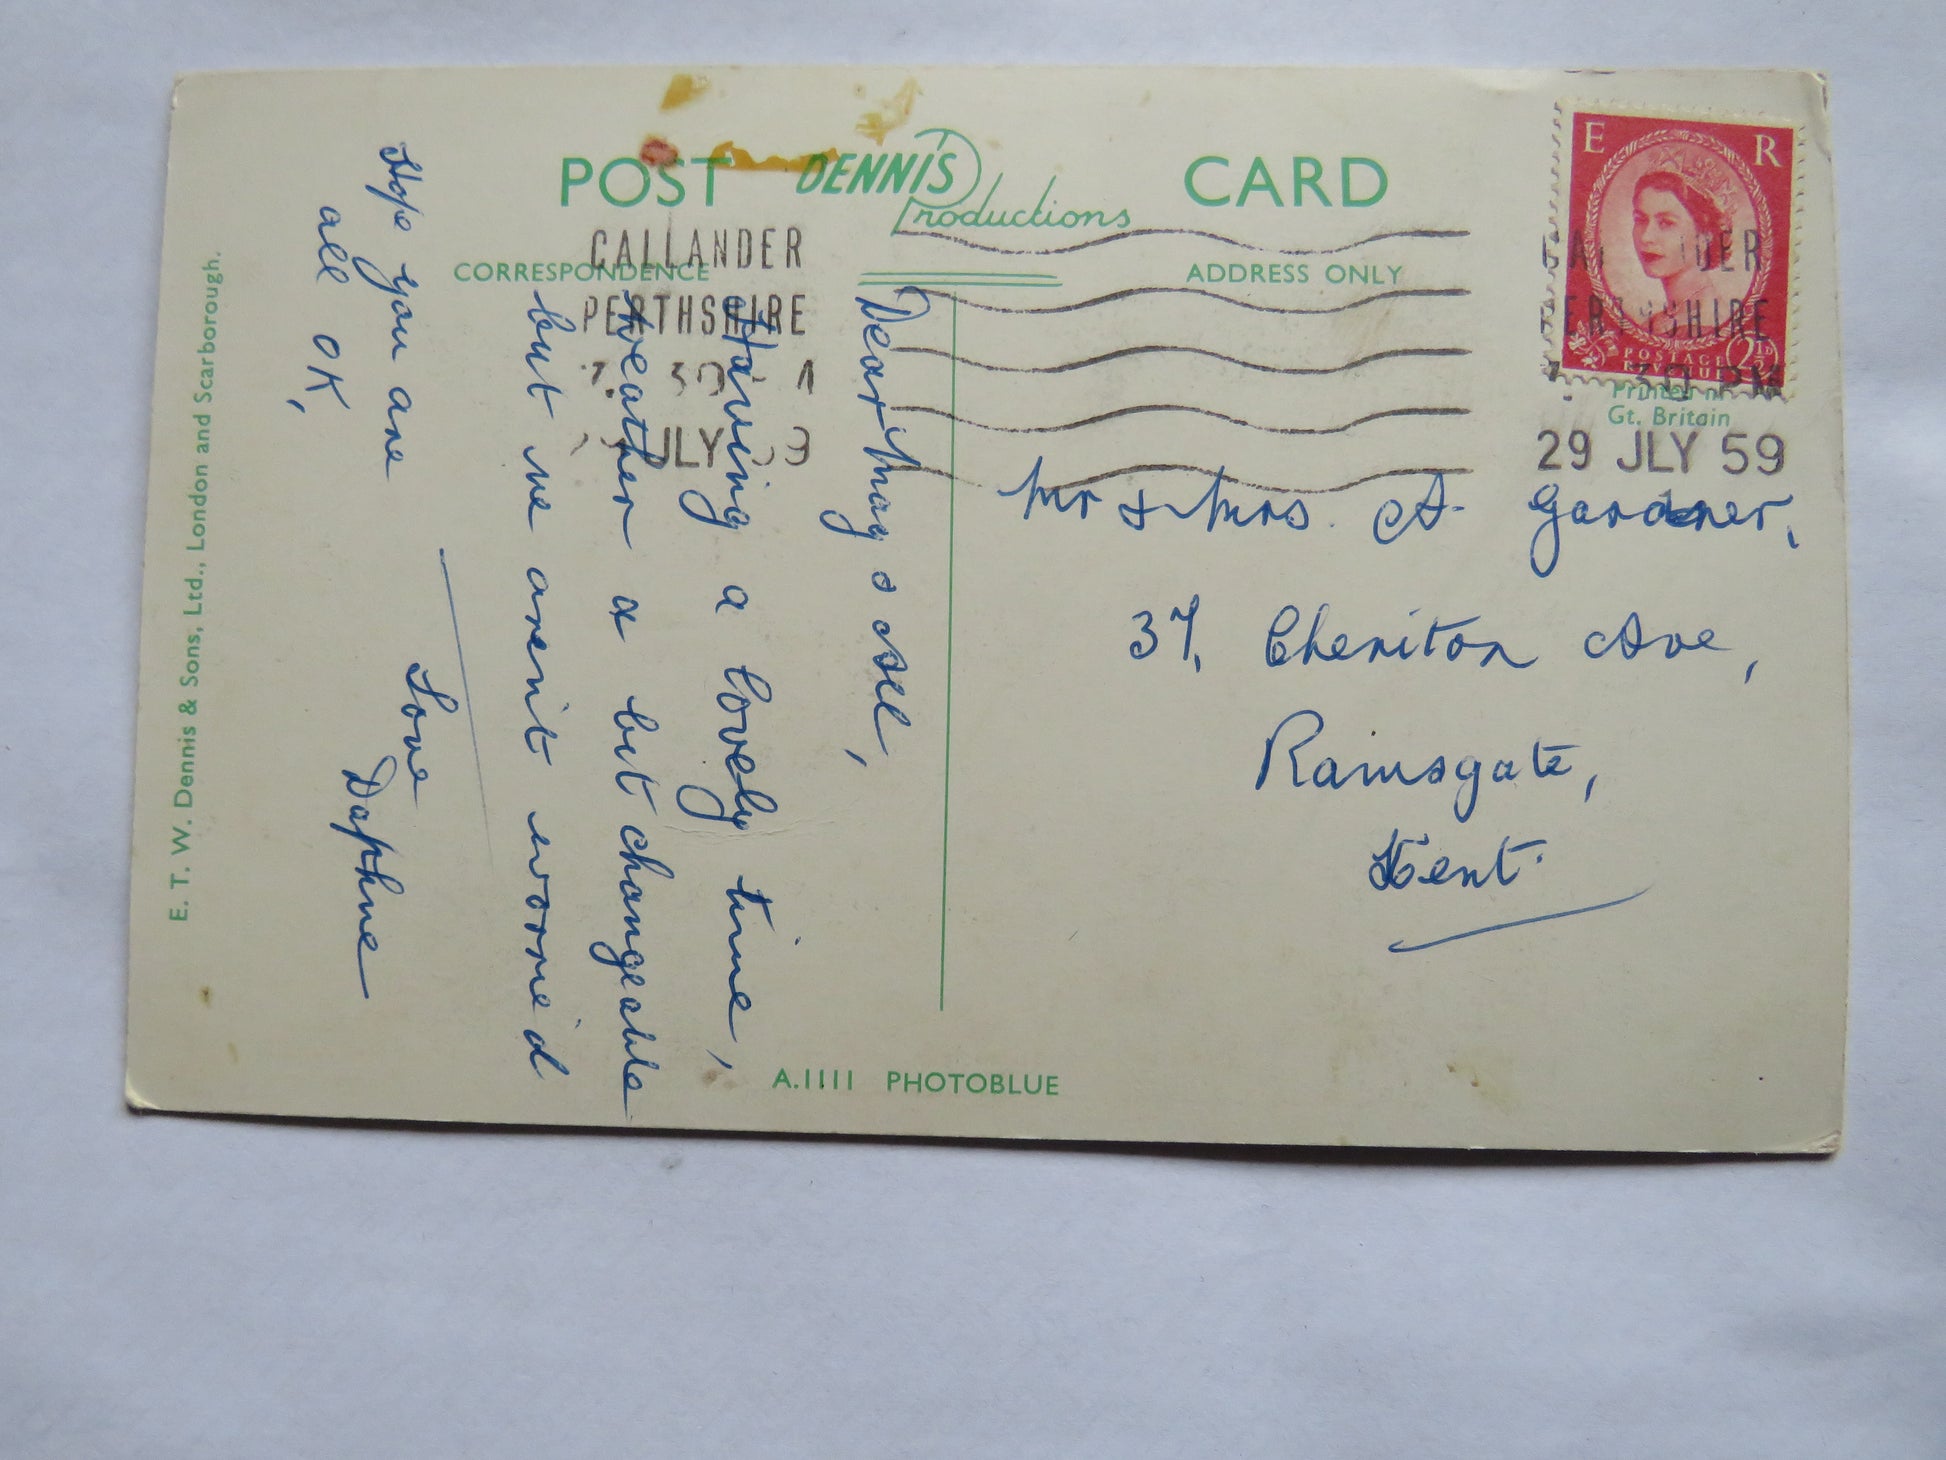 POST DENNIS Productions CARD
CORRESPONDENCE
ADDRESS ONLY
CALLANDER
PERTHSHIRE
JLY
E R
POSTAGE 2½D
REVENUE
PERTHSHIRE
30 PM
29 JLY 59
Printed in
Gt. Britain
Dear May & All,
Having a lovely time,
weather a bit changeable
but we aren't worried
Hope you are
all OK,
Love
Daphne
Mr & Mrs. A. Gardner,
37, Cheriton Ave,
Ramsgate,
Kent.
A.1111 PHOTOBLUE
E. T. W. Dennis & Sons, Ltd., London and Scarborough.